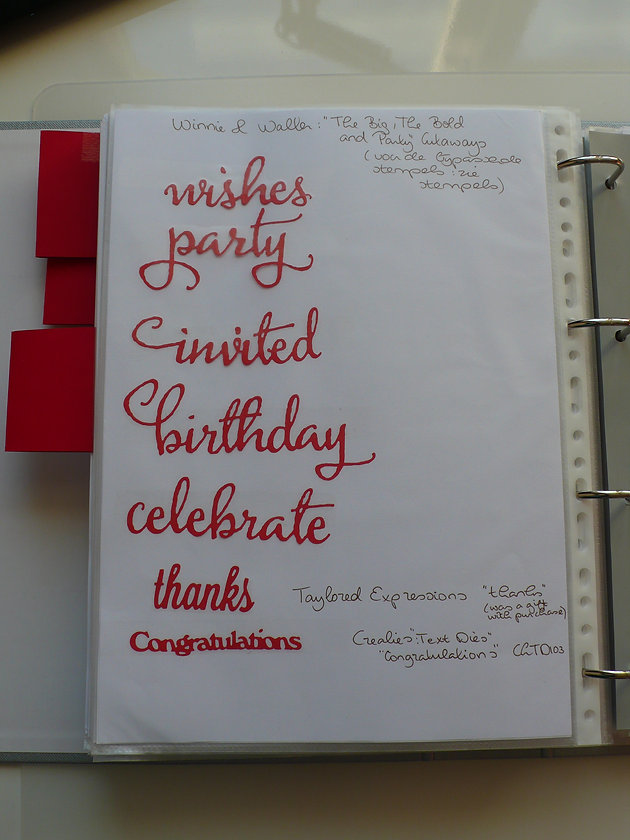 Winnie & Walter: "The Big, The Bold
and Party" Cutaways
(voor de bijpassende
stempels: zie
stempels)
wishes
party
invited
birthday
celebrate
thanks
Taylored Expressions "thanks"
(was a gift
with purchase)
Congratulations
Crealies: "Text Dies"
"Congratulations" CLTD103